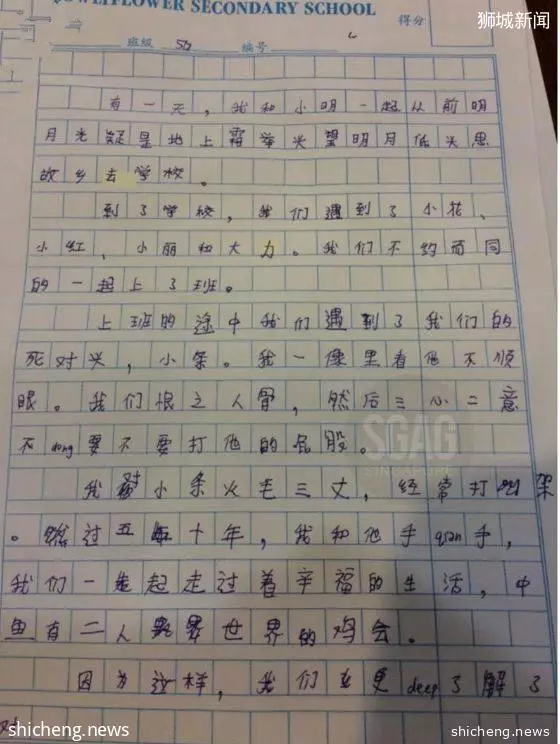 OWLIFLOWER SECONDARY SCHOOL
狮城新闻
得分
班级 编号
有一天，我和小明一起从前明
月光疑是地上霜举头望明月低头思
故乡去学校。
到了学校，我们遇到了小花、
小红、小丽和大力。我们不约而同
的一起上了班。
上班的途中我们遇到了我们的
死对头，小条。我一像里看他不顺
眼。我们恨之人骨，然后三心二意
不dong要不要打他的屁股。
SGAG
SINGAPORE
我对小条火毛三丈，经常打架
。过五十年，我和他手qian手，
我们一起走过着辛福的生活，中
鱼有二人世界的鸡会。
因为这样，我们更deep了解了
对
shicheng.news
shicheng.news